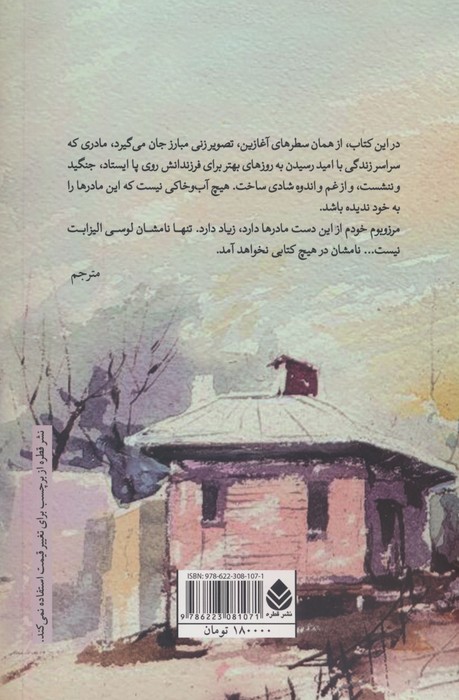 در این کتاب، از همان سطرهای آغازین، تصویر زنی مبارز جان می‌گیرد، مادری که
سراسر زندگی با امید رسیدن به روزهای بهتر برای فرزندانش روی پا ایستاد، جنگید
و ننشست، و از غم و اندوه شادی ساخت. هیچ آب‌وخاکی نیست که این مادرها را
به خود ندیده باشد.
مرزوبوم خودم از این دست مادرها دارد، زیاد دارد. تنها نامشان لوسی الیزابت
نیست... نامشان در هیچ کتابی نخواهد آمد.
مترجم
نشر قطره از برچسب برای تغییر قیمت استفاده نمی‌کند.
ISBN: 978-622-308-107-1
9 786223 081071
نشر قطره
۱۸۰۰۰۰ تومان